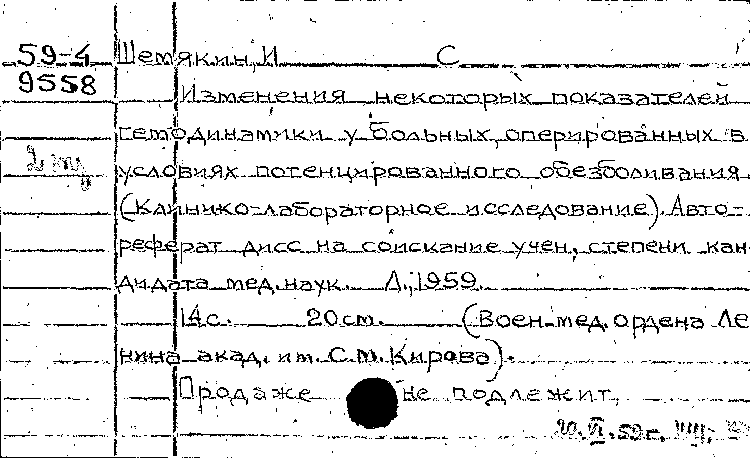 59-4 Шемякин, И С
9558
Изменения некоторых показателей
гемодинамики у больных, оперированных в
условиях потенцированного обезболивания
(Клинико-лабораторное исследование). Авто-
реферат дисс на соискание учен, степени кан-
дидата мед. наук. Л., 1959.
14с. 20 см. (Воен-мед. ордена Ле
нина акад. им. С.М. Кирова).
Продаже не подлежит,